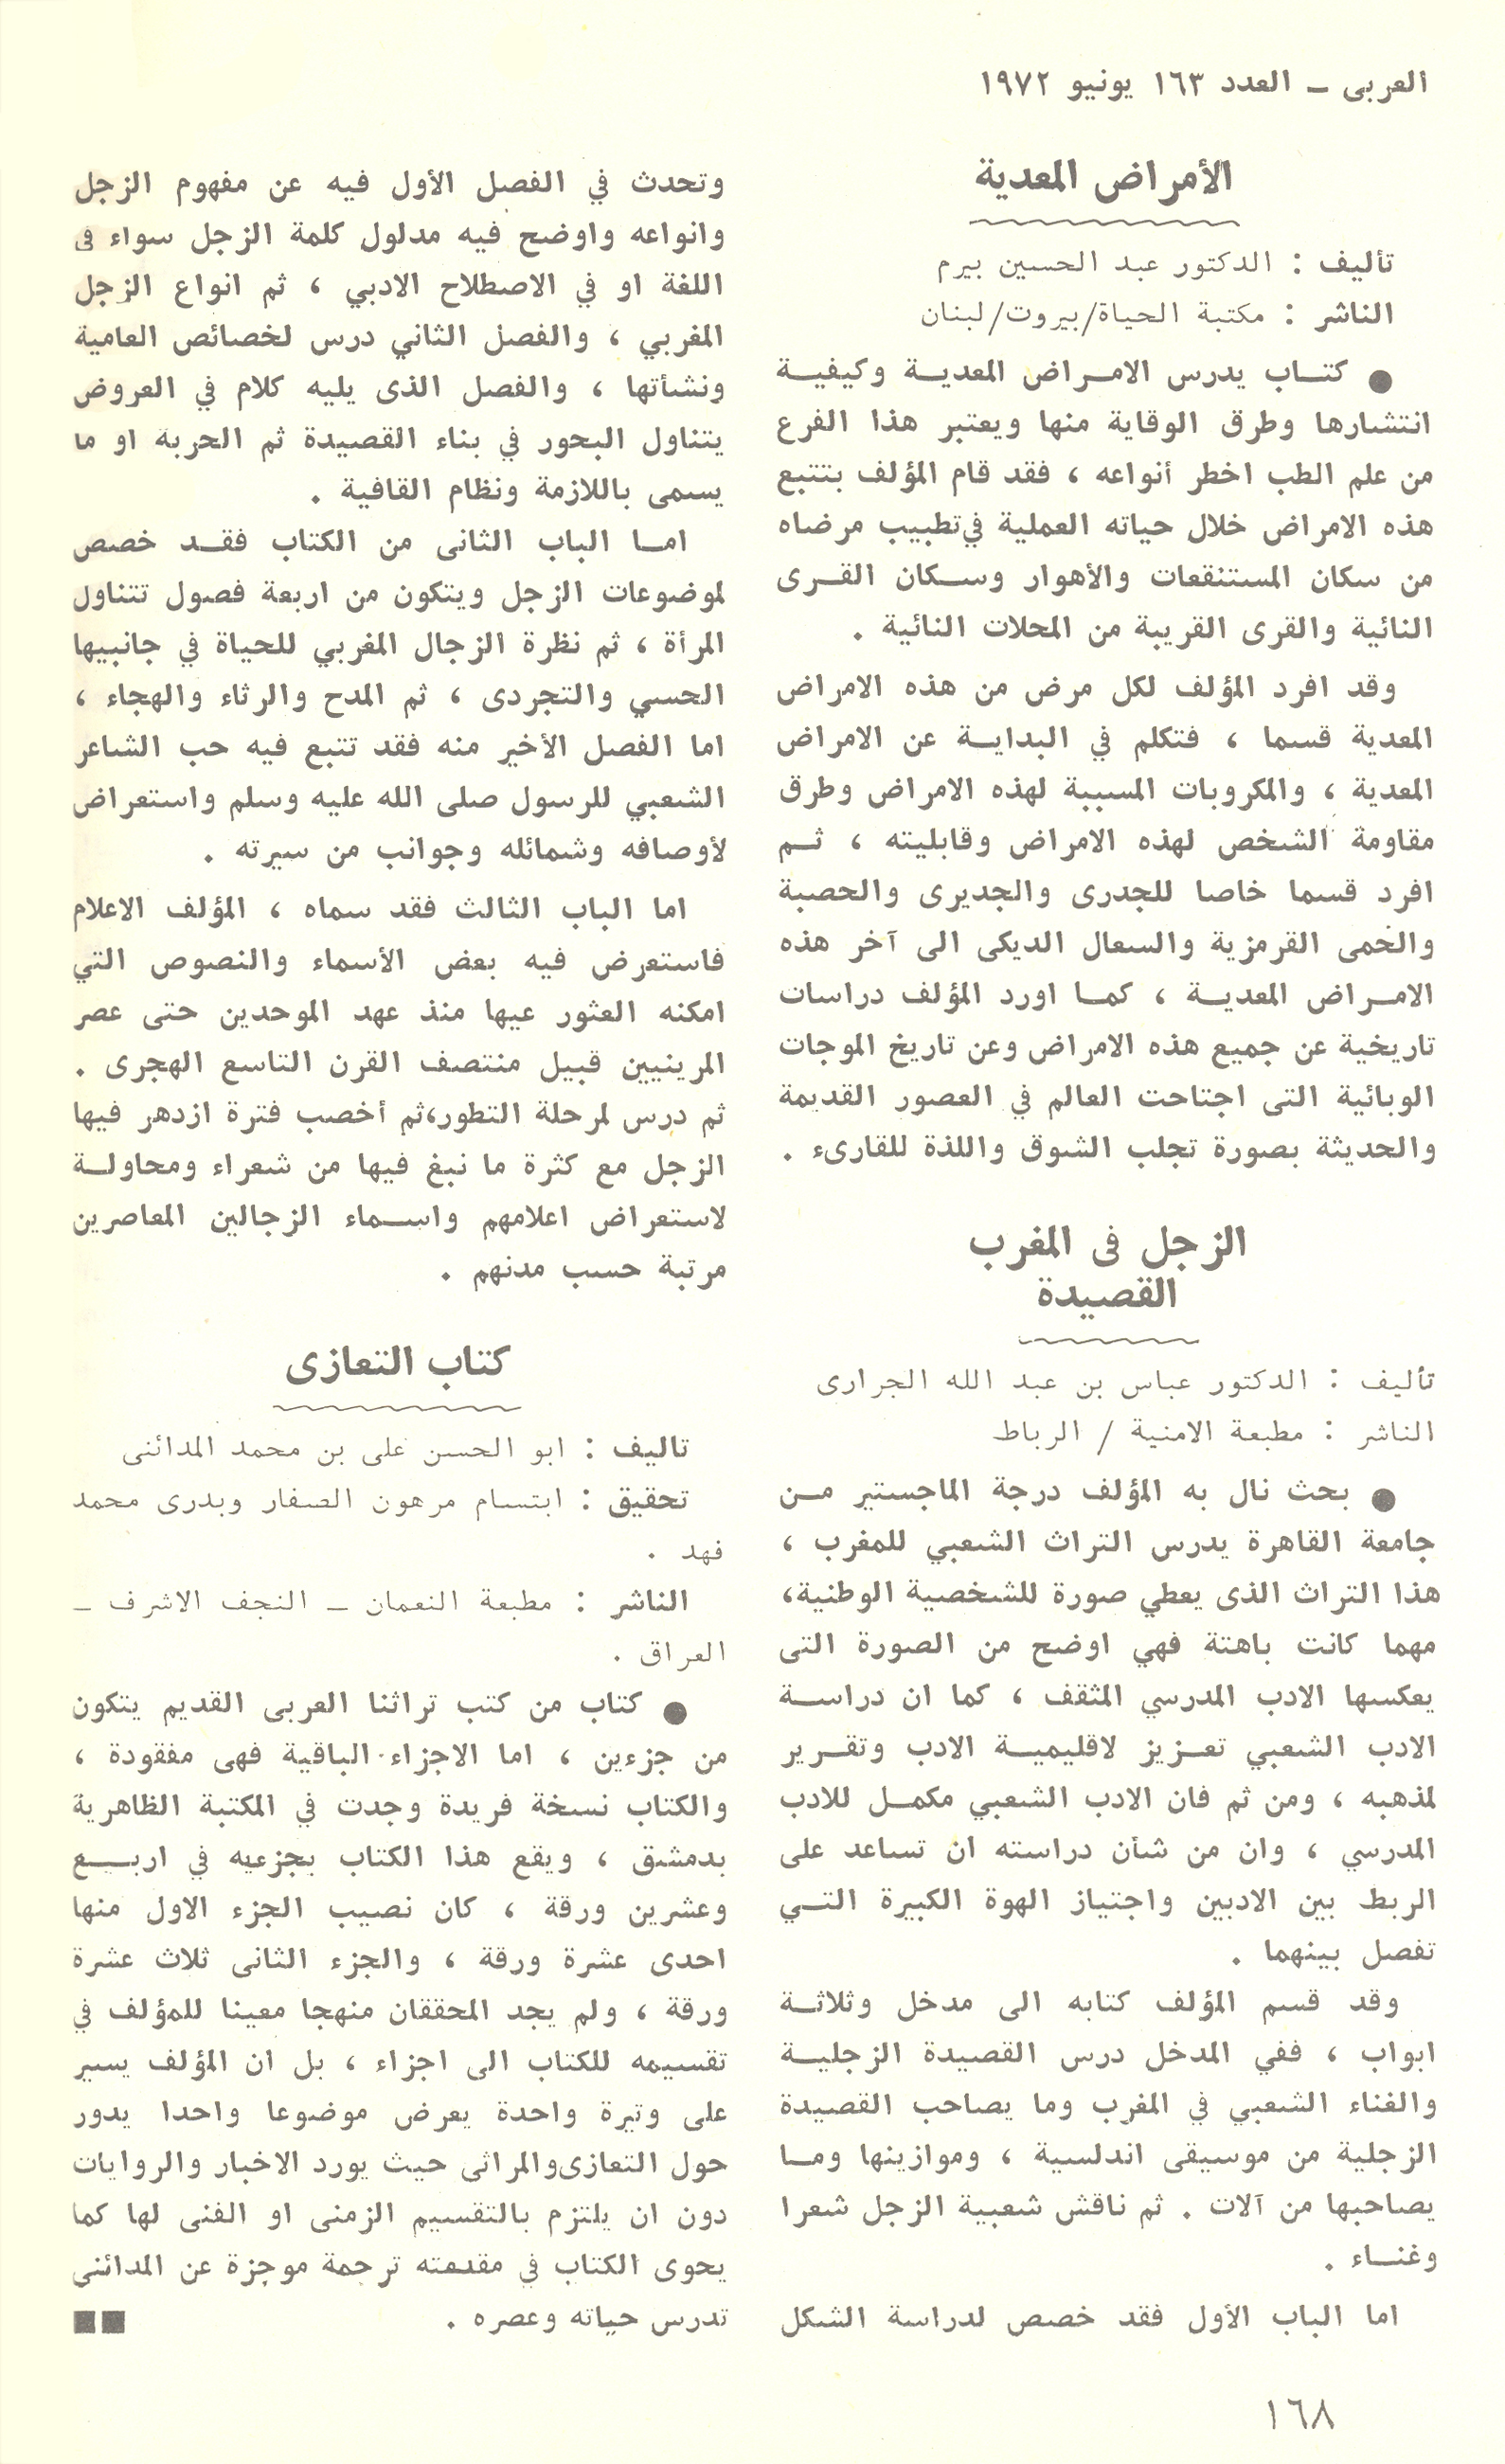 العربى ـ العدد ١٦٣ يونيو ١٩٧٢
الأمراض المعدية
تأليف : الدكتور عبد الحسين بيرم
الناشر : مكتبة الحياة/بيروت/لبنان
● كتاب يدرس الامراض المعدية وكيفية
انتشارها وطرق الوقاية منها ويعتبر هذا الفرع
من علم الطب اخطر أنواعه ، فقد قام المؤلف بتتبع
هذه الامراض خلال حياته العملية في تطبيب مرضاه
من سكان المستنقعات والأهوار وسكان القرى
النائية والقرى القريبة من المحلات النائية .
وقد افرد المؤلف لكل مرض من هذه الامراض
المعدية قسما ، فتكلم في البداية عن الامراض
المعدية ، والمكروبات المسببة لهذه الامراض وطرق
مقاومة الشخص لهذه الامراض وقابليته ، ثم
افرد قسما خاصا للجدرى والجديرى والحصبة
والحمى القرمزية والسعال الديكى الى آخر هذه
الامراض المعدية ، كما اورد المؤلف دراسات
تاريخية عن جميع هذه الامراض وعن تاريخ الموجات
الوبائية التى اجتاحت العالم في العصور القديمة
والحديثة بصورة تجلب الشوق واللذة للقارىء .
الزجل فى المغرب
القصيدة
تأليف : الدكتور عباس بن عبد الله الجرارى
الناشر : مطبعة الامنية / الرباط
● بحث نال به المؤلف درجة الماجستير من
جامعة القاهرة يدرس التراث الشعبي للمغرب ،
هذا التراث الذى يعطي صورة للشخصية الوطنية،
مهما كانت باهتة فهي اوضح من الصورة التى
يعكسها الادب المدرسي المثقف ، كما ان دراسة
الادب الشعبي تعزيز لاقليمية الادب وتقرير
لمذهبه ، ومن ثم فان الادب الشعبي مكمل للادب
المدرسي ، وان من شأن دراسته ان تساعد على
الربط بين الادبين واجتياز الهوة الكبيرة التي
تفصل بينهما .
وقد قسم المؤلف كتابه الى مدخل وثلاثة
ابواب ، ففي المدخل درس القصيدة الزجلية
والغناء الشعبي في المغرب وما يصاحب القصيدة
الزجلية من موسيقى اندلسية ، وموازينها وما
يصاحبها من آلات . ثم ناقش شعبية الزجل شعرا
وغناء .
اما الباب الأول فقد خصص لدراسة الشكل
وتحدث في الفصل الأول فيه عن مفهوم الزجل
وانواعه واوضح فيه مدلول كلمة الزجل سواء فى
اللغة او في الاصطلاح الادبي ، ثم انواع الزجل
المغربي ، والفصل الثاني درس لخصائص العامية
ونشأتها ، والفصل الذى يليه كلام في العروض
يتناول البحور في بناء القصيدة ثم الحربة او ما
يسمى باللازمة ونظام القافية .
اما الباب الثانى من الكتاب فقد خصص
لموضوعات الزجل ويتكون من اربعة فصول تتناول
المرأة ، ثم نظرة الزجال المغربي للحياة في جانبيها
الحسي والتجردى ، ثم المدح والرثاء والهجاء ،
اما الفصل الأخير منه فقد تتبع فيه حب الشاعر
الشعبي للرسول صلى الله عليه وسلم واستعراض
لأوصافه وشمائله وجوانب من سيرته .
اما الباب الثالث فقد سماه ، المؤلف الاعلام
فاستعرض فيه بعض الأسماء والنصوص التي
امكنه العثور عيها منذ عهد الموحدين حتى عصر
المرينيين قبيل منتصف القرن التاسع الهجرى .
ثم درس لمرحلة التطور،ثم أخصب فترة ازدهر فيها
الزجل مع كثرة ما نبغ فيها من شعراء ومحاولة
لاستعراض اعلامهم واسماء الزجالين المعاصرين
مرتبة حسب مدنهم .
كتاب التعازى
تاليف : ابو الحسن على بن محمد المدائنى
تحقيق : ابتسام مرهون الصفار وبدرى محمد
فهد .
الناشر : مطبعة النعمان ـ النجف الاشرف ـ
العراق .
● كتاب من كتب تراثنا العربى القديم يتكون
من جزءين ، اما الاجزاء الباقية فهى مفقودة ،
والكتاب نسخة فريدة وجدت في المكتبة الظاهرية
بدمشق ، ويقع هذا الكتاب بجزءيه في اربع
وعشرين ورقة ، كان نصيب الجزء الاول منها
احدى عشرة ورقة ، والجزء الثانى ثلاث عشرة
ورقة ، ولم يجد المحققان منهجا معينا للمؤلف في
تقسيمه للكتاب الى اجزاء ، بل ان المؤلف يسير
على وتيرة واحدة يعرض موضوعا واحدا يدور
حول التعازى والمراثى حيث يورد الاخبار والروايات
دون ان يلتزم بالتقسيم الزمنى او الفنى لها كما
يحوى الكتاب في مقدمته ترجمة موجزة عن المدائنى
تدرس حياته وعصره . ■■
١٦٨